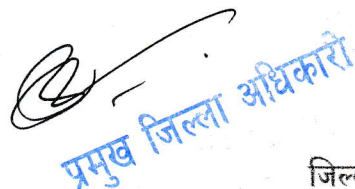 प्रमुख जिल्ला अधिकारी
जिल